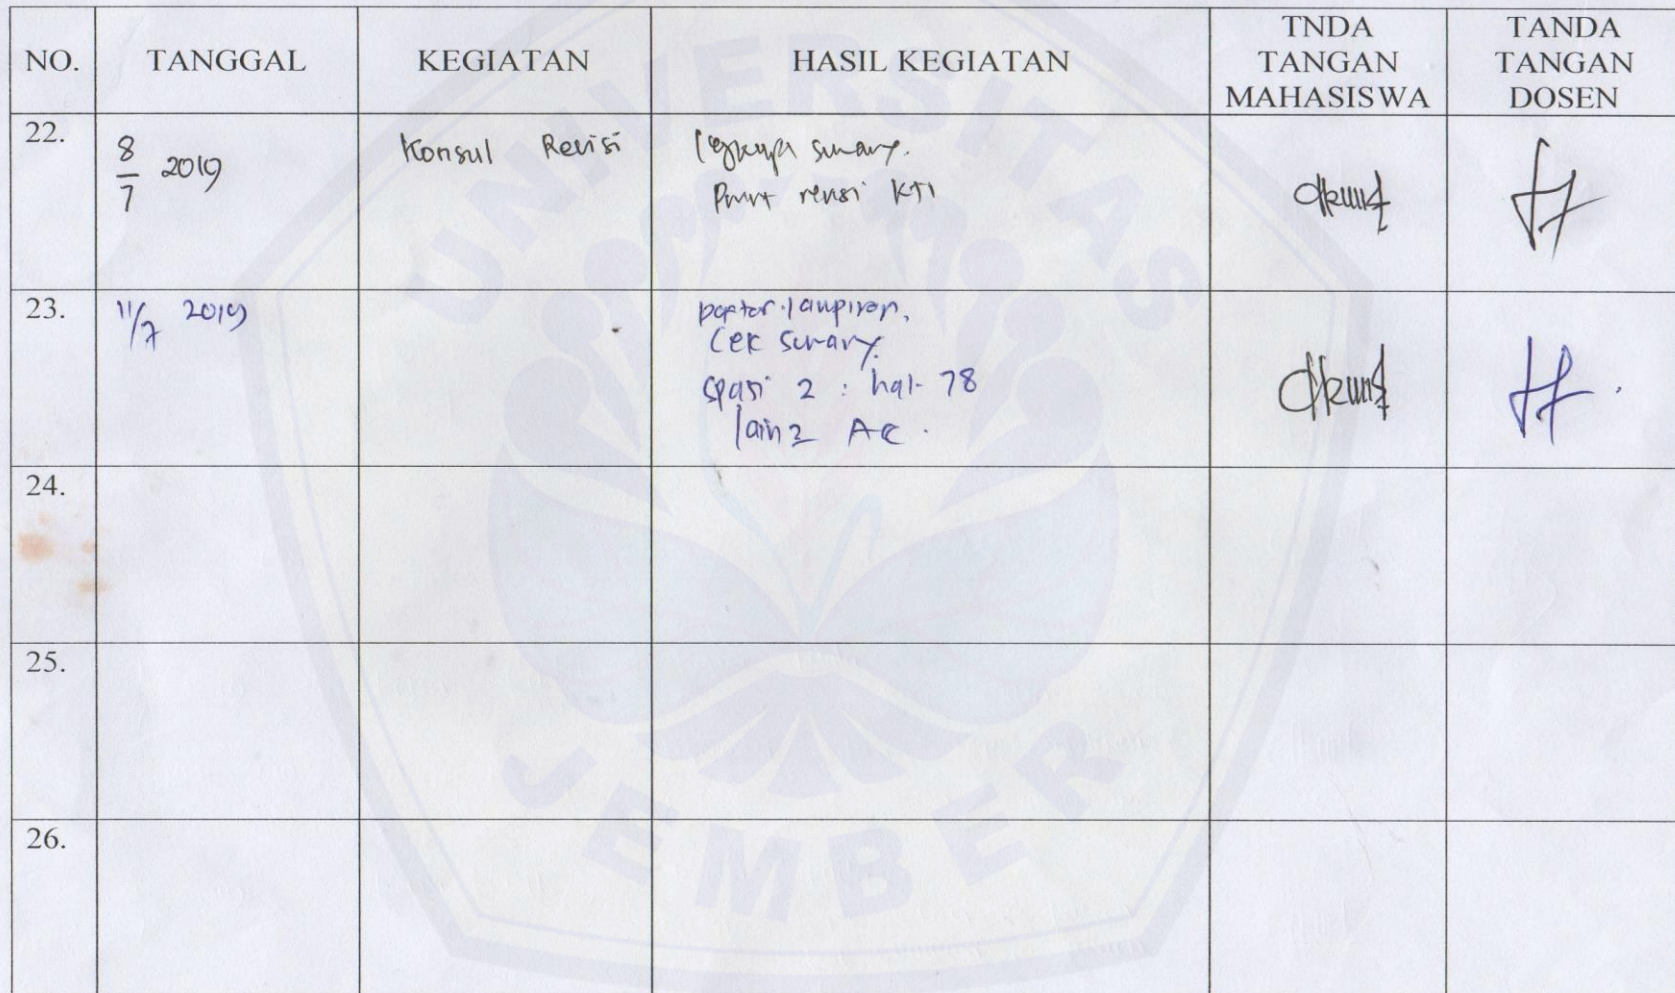 NO. TANGGAL KEGIATAN HASIL KEGIATAN TNDA TANGAN MAHASISWA TANDA TANGAN DOSEN
22. 8/7 2019 Konsul Revisi
revisi KTI
23. 11/7 2019 lampiran,
Cek
spasi 2 : hal. 78
lain2 Acc.
24.
25.
26.
UNIVERSITAS
JEMBER